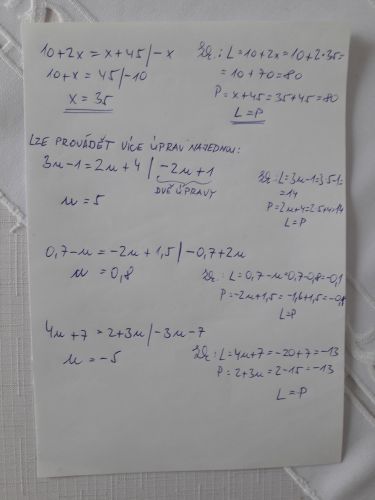 10+2x = x+45 /-x
10+x = 45 /-10
x = 35
Zk.: L=10+2x=10+2·35=
=10+70=80
P=x+45=35+45=80
L=P
LZE PROVÁDĚT VÍCE ÚPRAV NAJEDNOU:
3u-1=2u+4 / -2u+1
DVĚ ÚPRAVY
u=5
Zk.: L=3u-1=3·5-1=
=14
P=2u+4=2·5+4=14
L=P
0,7-u = -2u+1,5 / -0,7+2u
u = 0,8
Zk.: L=0,7-u=0,7-0,8=-0,1
P=-2u+1,5=-1,6+1,5=-0,1
L=P
4u+7 = 2+3u /-3u-7
u = -5
Zk.: L=4u+7=-20+7=-13
P=2+3u=2-15=-13
L=P